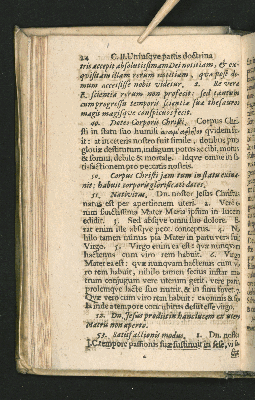 24 C. II. Uniusque partis doctrina
tris accepit absolutissimam Dei notitiam, & ex-
quisitam illam rerum notitiam, quæ post de-
mum accessisse nobis videtur. 2. Re vera
R. scientia rerum non profecit: sed tantum
cum progressu temporis scientia sua thesauros
magis magisque conspicuos fecit.
49. Dotes Corporis Christi. Corpus Chri-
sti in statu suo humili quidem fu-
it: at in ceteris nostro fuit simile, doribus pro
gloriæ destitutum, indigum potus ac cibi, motus
& somni, debile & mortale. Idque omne in sa-
tisfactionem pro peccatis nostris.
50. Corpus Christi jam tum in statu exina-
nit: habuit corporu glorificati dotes.
51. Nativitas. Dn. noster Jesus Christus
natus est per apertionem uteri. 2. Vero
rum sanctissima Mater Maria ipsum in lucem
edidit. 3. Sed absque omni suo dolore. E-
rat enim ille absque pecc. conceptus. 4. N
hilo tamen minus pia Mater in partu vera fuit
Virgo. 5. Virgo enim ea est quæ nunquam
hactenus cum viro rem habuit. 6. Virgo
Mater ea est: quæ nunquam hactenus cum vi-
ro rem habuit, nihilo tamen secius instar ma-
trum conjugum vere uterum gerit: vere parit
prolemque lacte suo nutrit, & in sinu fovet.
Quæ vero cum viro rem habuit: ea omnis & so-
la inde a tempore concubitus desiit esse virgo.
52. Dn. Jesus prodiit in hanc lucem ex utero
Matris non aperto.
53. Satisfactionis modus. 1. Dn. noster
J. C. tempore passionis suæ sustinuit in sese, vi